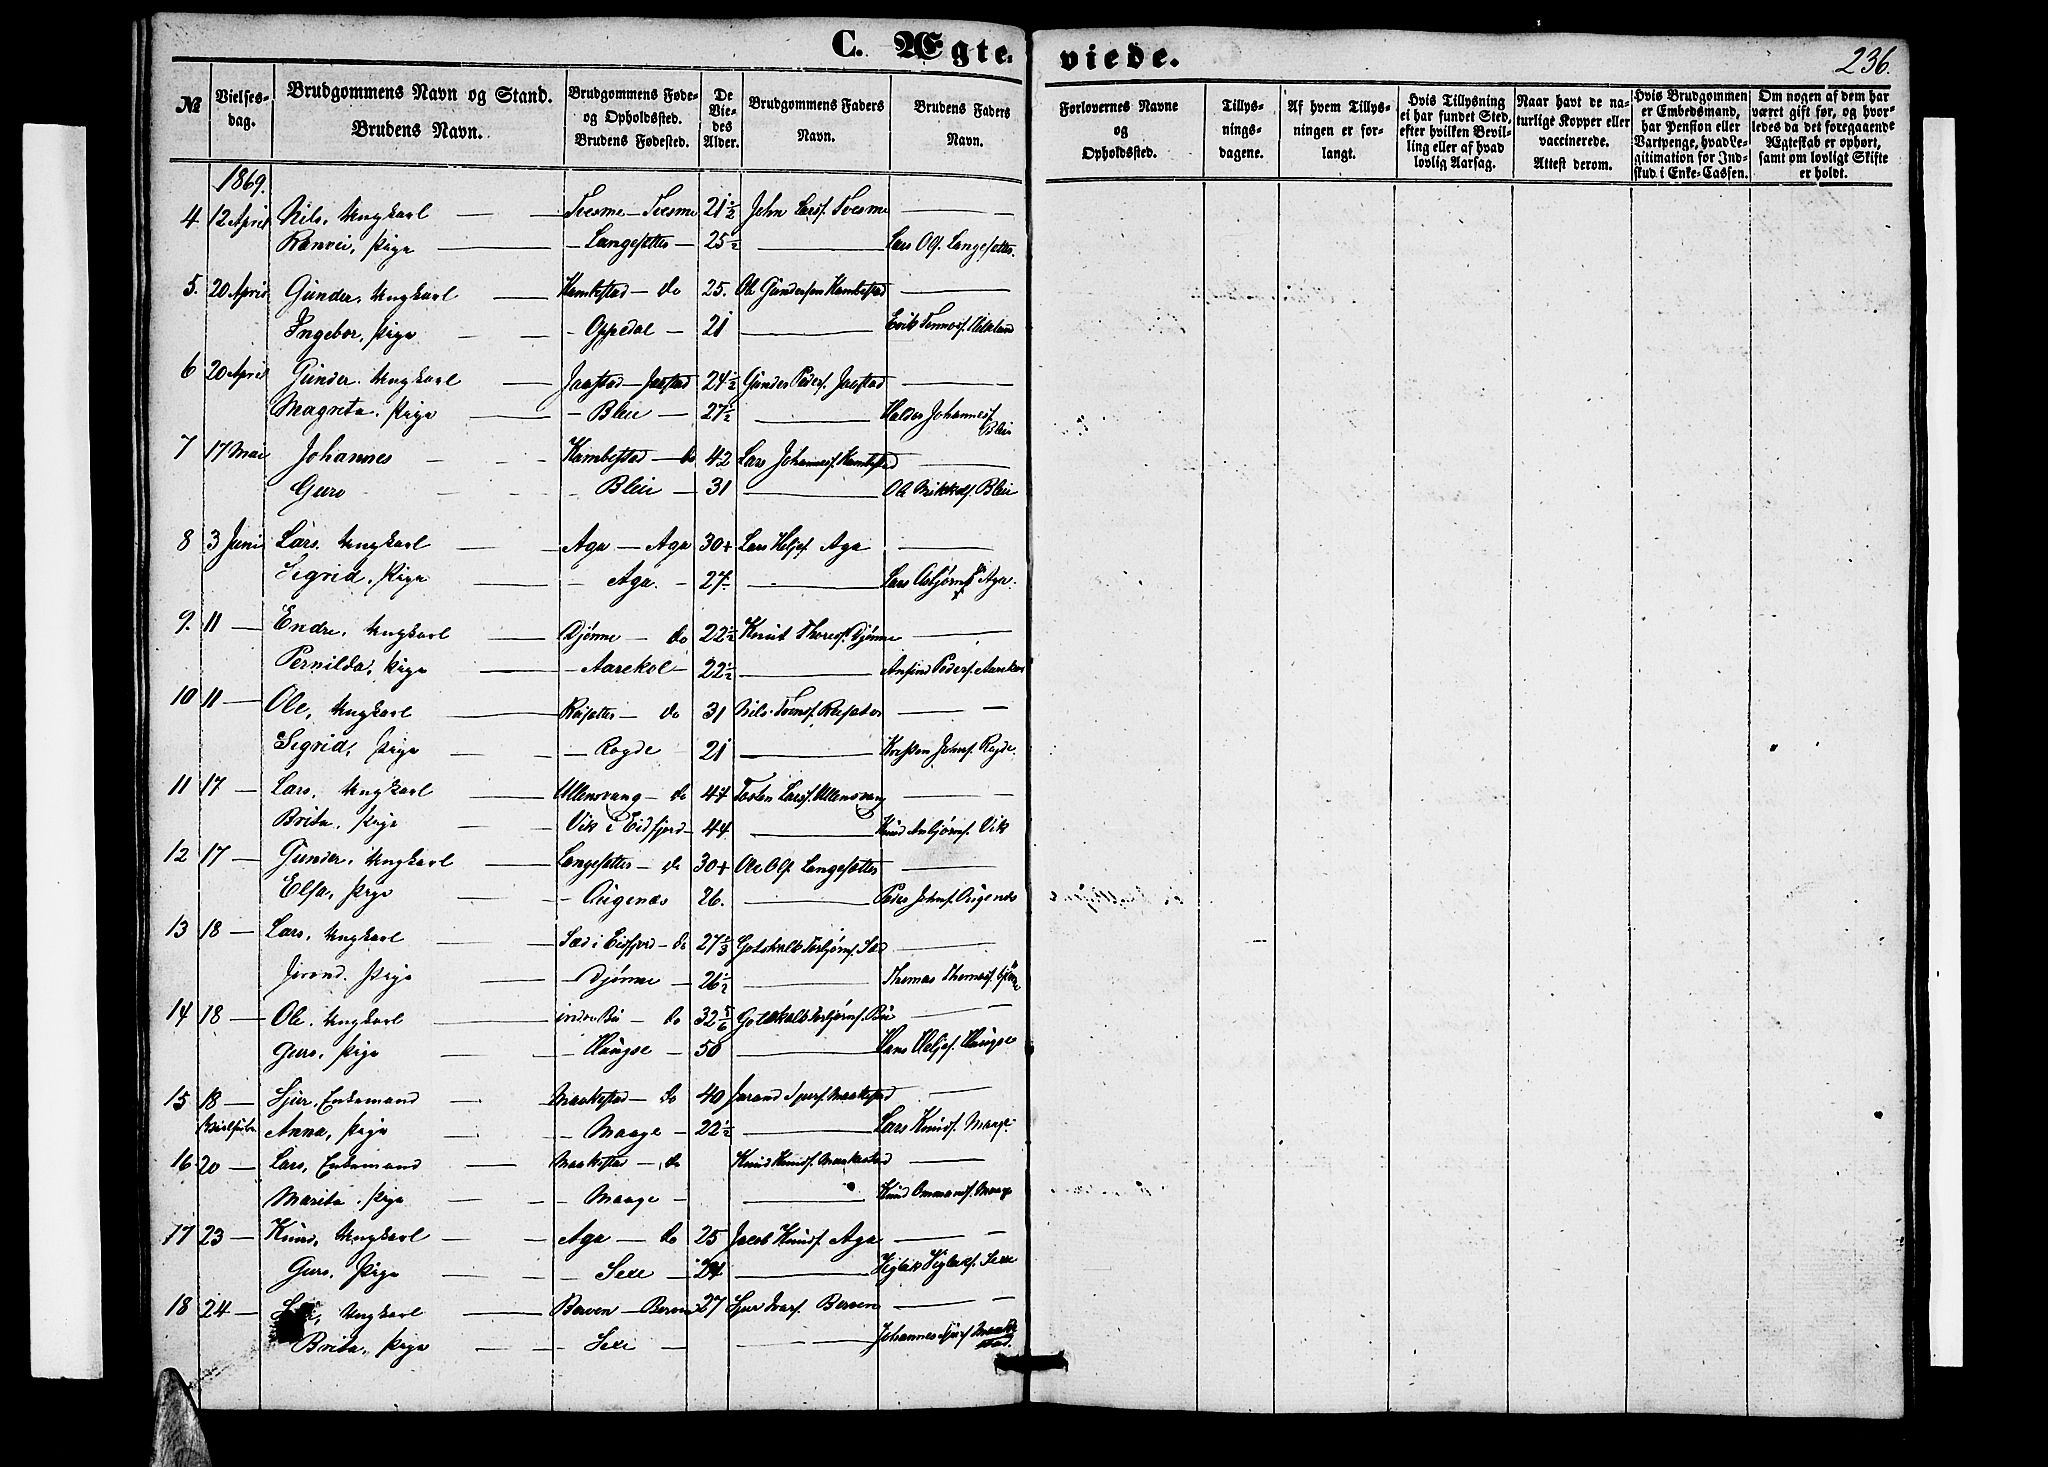 C. Ægte-
viede.
236.
№
Vielses-
dag.
Brudgommens Navn og Stand.
Brudens Navn.
Brudgommens Føde-
og Opholdssted.
Brudens Fødested.
De
Vie-
des
Alder.
Brudgommens Faders
Navn.
Brudens Faders
Navn.
Forlovernes Navne
og
Opholdssted.
Tillys-
nings-
dagene.
Af hvem Tillys-
ningen er for-
langt.
Hvis Tillysning
ei har fundet Sted,
efter hvilken Bevil-
ling eller af hvad
lovlig Aarsag.
Naar havt de na-
turlige Kopper eller
vaccinerede.
Attest derom.
Hvis Brudgommen
er Embedsmand,
har Pension eller
Vartpenge, hvad Le-
gitimation for Ind-
skud i Enke-Cassen.
Om nogen af dem har
været gift før, og hvor-
ledes da det foregaaende
Ægteskab er ophørt,
samt om lovligt Skifte
er holdt.
1869.
4 12 April Nils, Ungkarl — Tvesme — Tvesme 21½ John Larsf. Tvesme —
Ranvei, Pige — Langesætter — 25½ — Lars Olsf. Langesætter.
5. 20 April Gunder, Ungkarl — Kambestad — do 25. Ole Gundersen Kambestad —
Ingebor, Pige — Oppedal — 21 — Erik
6 20 April Gunder, Ungkarl — Jaastad — Jaastad 24½ Gunder Pedersf. Jaastad —
Magreta, Pige — Bleie — 27½ — Haldor Johannesf. Bleie
7 17 Mai Johannes — Kambestad — do 42 Lars Johannesf. Kambestad —
Guro — Bleie — 31 — Ole Mikkelsf. Bleie
8 3 Juni Lars, Ungkarl — Aga — Aga 30+ Lars Heljesf. Aga —
Sigrid, Pige — Aga. — 27- — Lars Asbjørnsf. Aga.
9. 11 — Endre, Ungkarl — Djønne — do 22½ Knut Thoresf. Djønne —
Pernilda, Pige — Aarekol — 22½ — Anfind Pedersf. Aarekol
10 11 — Ole, Ungkarl — Reisæter — do 31 Nils Reisæter —
Sigrid, Pige — Rogde — 21 — Johnsf. Rogde.
11 17 — Lars, Ungkarl — Ullensvang — do 44 Torsten Larsf. Ullensvang —
Brita, Pige — Vik i Eidfjord — 44 — Knud Asbjørnsf. Vik
12 17 — Gunder, Ungkarl — Langesætter — do 30+ Ole Olsf. Langesætter —
Elsa, Pige — Augenæs — 26. — Peder Johnsf. Augenæs
13 18 — Lars, Ungkarl — Sæd i Eidfjord — do 27⅔ Gotskalk Torbjørnsf. Sæd —
Jorand, Pige — Djønne — 26½ — Thomas Thomasf. Djønne
14 18 — Ole, Ungkarl — indre Bu — do 32⅚ Gotskalk Torbjørnsf. Bu —
Guro, Pige — Haugse — 50 — Hans Heljesf. Haugse
15 18 — Sjur, Enkemand — Maakestad — do 40 Jarand Sjursf. Maakestad —
Anna, Pige — Maage — 22½ — Lars Knudsf. Maage.
16 20 — Lars, Enkemand — Maakestad — do Knud Knudsf. Maakestad —
Marita, Pige — Maage — — Knud Ommundsf. Maage
17 23 — Knud, Ungkarl — Aga — do 25 Jacob Knudsf. Aga —
Guro, Pige — Sexe — 24 — Viglik Vigleiksf. Sexe
18 24 — Ungkarl — Berven — Berven 27 Sjur Ivarsf. Berven —
Brita, Pige — Sexe — — Johannes Sjursf. Maakestad.